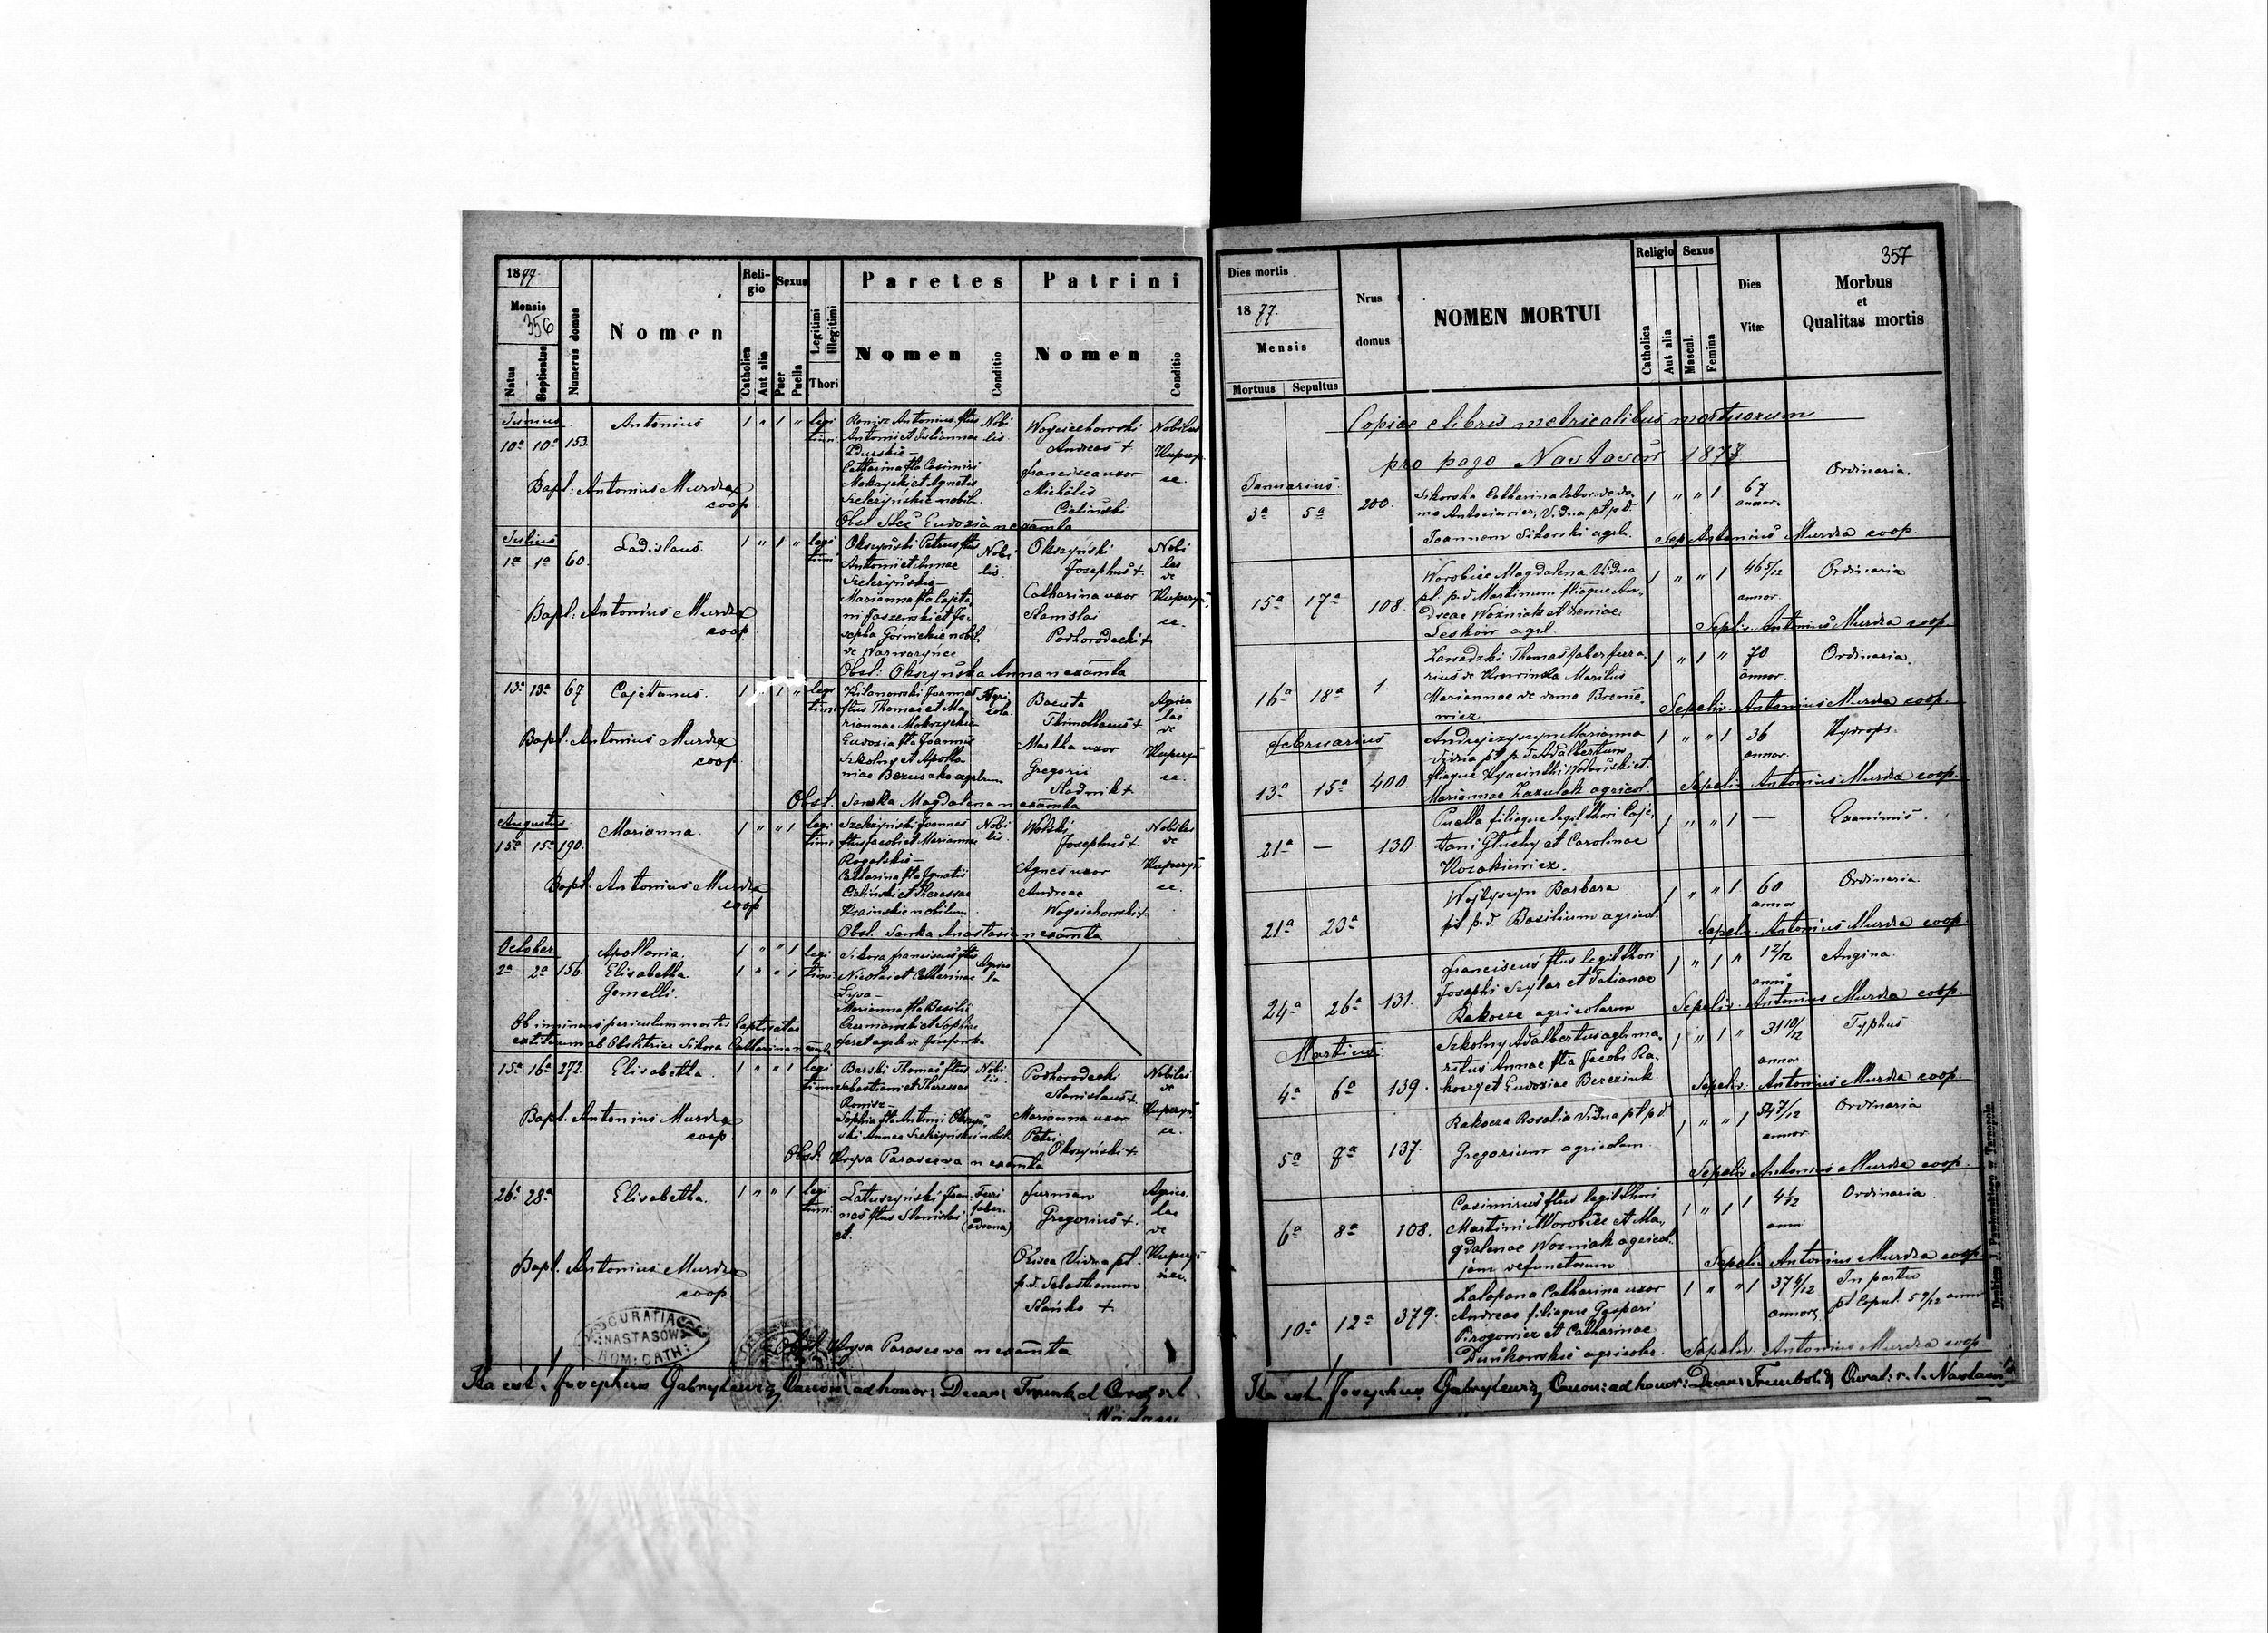 1877.
Mensis
356
Natus
Baptisatus
Numerus domus
Nomen
Religio
Catholica
Aut alia
Sexus
Puer
Puella
Legitimi
Illegitimi
Thori
Paretes
Nomen
Conditio
Patrini
Nomen
Conditio
Junius
10a 10a 153. Antonius 1 " 1 " legitimi
Ronisz Antonius flius
Antonii et Juliannae
Catharina flia Casimiri
Mokrzycki et Agnetis
Szeleżyńskie nobil.
Nobilis
Woyciechowski
Andreas +
Francisca uxor
Michaelis
Cieliński
Nobiles
Bapt. Antonius Murdza
coop
Julius
1a 1a 60. Ladislaus. 1 " 1 " legitimi
Okszyński Petrus flius
Antonii et Annae
Szeleżyńskie –
Marianna flia Cajeta
ni Jaszewski et Jo
sepha Górnickie nobil.
de Warwaryńce
Nobilis
Okszyński
Josephus +
Catharina uxor
Stanislai
Podhorodecki +
Nobiles
de
Bapt. Antonius Murdza
coop.
Obst: Okszyńska Anna n examta
13a 13a 67 Cajetanus. 1 1 " legitimi
Kilanowski Joannes
flius Thomae et Ma
riannae Mokrzyckie
Eudoxia flia Joannis
Szkolny et Apollo
niae Bezuszko agclrum
Agricola
Bacuta
Thimotheus +
Martha uxor
Gregorii
Stadnik +
Agricolae
de
Bapt. Antonius Murdza
coop.
Obst. Sanska Magdalena n examta
Augustus
15a 15a 190. Marianna. 1 " " 1 legitimi
Szeleżyński Joannes
flius Jacobi et Mariannae
Rogalskie –
Catharina flia Ignatii
Cieliński et Theressae
Krainskie nobilium
Nobilis.
Wolski
Josephus +.
Agnes uxor
Andreae
Woyciehowski +
Nobiles
de
Bapt. Antonius Murdza
coop
Obst. Sanka Anastasia n examta
October
2a 2a 156. Apollonia,
Elisabetha.
Gemelli.
1 " " 1 legi
1 " " 1 timi
Sikora Franciscus flius
Nicolai et Catherinae
Lysa –
Marianna flia Basilii
Czerniawski et Sophiae
Seret agclr. de Josefowka
Agricola
Ob iminens periculum mortis baptisatae
ab Obstetrice Sikora Catharina n examta
15a 16a 272. Elisabetha. 1 " " 1 legitimi
Barski Thomas flius
Sebastiani et Theressae
Ronisz –
Sophia flia Antoni Okszyń
ski Annae Szeleżyńskie nobil.
Nobilis
Podhorodecki
Stanislaus +.
Marianna uxor
Petri
Okszyński +
Nobiles
de
Bapt. Antonius Murdza
coop.
Obst. Krysa Parascewa n examta
26a 28a Elisabetha. 1 " " 1 legitimi
Latuszyński Joan
nes flius Stanislai
et.
Ferri
faber.
Furman
Gregorius +.
Vidua pt.
p.d. Sebastianum
Stańko +
Agricolae
de
Bapt. Antonius Murdza
coop
CURATIA
NASTASÓW
ROM: CATH:
Obst. Krysa Parascewa n examta
Ita est. Josephus Gabrylewicz, Canon: ad honor: Decan:
357
Dies mortis
1877.
Mensis
Mortuus
Sepultus
Nrus
domus
NOMEN MORTUI
Religio
Catholica
Aut alia
Sexus
Mascul.
Femina
Dies
Vitæ
Morbus
et
Qualitas mortis
Copiae e libris metricalibus mortuorum
pro pago Nastasów 1877
Januarius.
3a 5a 200. Sikorska Catharina labor. de do
mo Antosiewicz, Vidua pt p d
Joannem Sikorski agcl.
1 " " 1 67 annor. Ordinaria.
Sep Antonius Murdza coop.
15a 17a 108. Worobiec Magdalena Vidua
pt. p. d Martinum fliaque An,
dreae Woźniak et Xeniae
Leskow agcl.
1 " " 1 46 5/12 annor. Ordinaria
Sepeliv. Antonius Murdza coop.
16a 18a 1. Zawadzki Thomas faber ferra,
rius de Krowinka Maritus
Mariannae de domo
1 " 1 " 70 annor. Ordinaria.
Sepeliv. Antonius Murdza coop.
Februarius
13a 15a 400. Andrejczyszyn Marianna
Vidua pt p. d Adalbertum
fliaque Hyacinthi et
Mariannae Zazulak agricol.
1 " " 1 36 annor. Hydrops.
Sepeliv. Antonius Murdza coop.
21a — 130. Puella filiaque legit thori Caje,
tani Gluchy et Carolinae
Kozakiewicz.
1 " " 1 — Exanimis.
21a 23a Wojtyszyn Barbara
pt p. d Basilium agricol.
1 " " 1 60 annor Ordinaria.
Sepeliv. Antonius Murdza coop.
24a 26a 131. Franciscus flius legit thori
Josephi et Tatianae
Rakocze agricolarum
1 " 1 " 1 2/12 Angina.
Sepeliv. Antonius Murdza coop.
Martius.
4a 6a 139. Szkolny Adalbertus agcl. ma,
ritus Annae flia Jacobi Ra,
koczy et Eudoxiae
1 " 1 " 31 10/12 annor Typhus
Sepeliv. Antonius Murdza coop.
5a 7a 137. Rakocza Rosalia Vidua pt p d
Gregorium agricolam.
1 " " 1 54 7/12 annor Ordinaria
Sepeliv. Antonius Murdza coop.
6a 8a 108. Casimirus flius legit thori
Martini Worobiec et Ma,
gdalenae Wozniak agricol.
jam defunctorum
1 " 1 1 4 1/12 anni Ordinaria.
Sepeliv. Antonius Murdza coop.
10a 12a 379. Zalopana Catharina uxor
Andreae filiaque Gaspari
Pirogowicz et Catharinae
Duńkowskie agricolar.
1 " " 1 37 4/12 annor. In partu
pt Copul. 5 9/12 anni
Sepeliv. Antonius Murdza coop.
Ita est. Josephus Gabrylewicz, Canon: ad honor: Decan: Trembol: & Curat: r. l. Nastasów
Drukiem J. Pawłowskiego w Tarnopolu